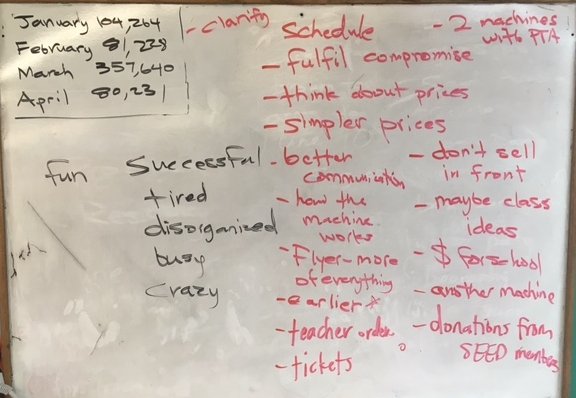 January 104,264
February 81,228
March 357,640
April 80,231
fun
Successful
tired
disorganized
busy
crazy
- clarify schedule
- fulfil compromise
- think about prices
- simpler prices
- better communication
- how the
machine
works
- Flyer-more
of everything
- earlier *
- teacher order
- tickets
- 2 machines
with PTA
- don't sell
in front
- maybe class
ideas
- $ for school
- another machine
- donations from
SEED members